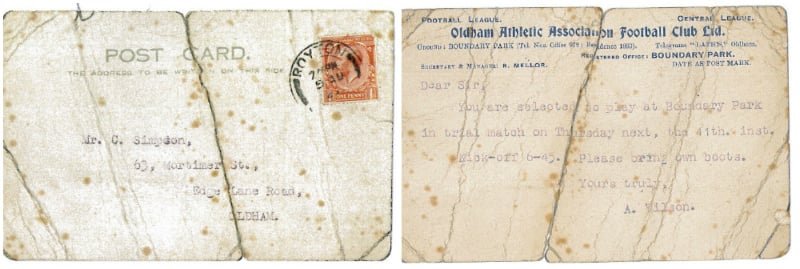 POST CARD.
THE ADDRESS TO BE WRITTEN ON THIS SIDE
ROYTON
ONE PENNY
Mr. C. Simpson,
63, Mortimer St.,
Edge Lane Road,
OLDHAM.
FOOTBALL LEAGUE.
CENTRAL LEAGUE.
Oldham Athletic Association Football Club Ltd.
GROUND: BOUNDARY PARK (Tel. Nos. Office
Telegrams "LATICS," Oldham.
REGISTERED OFFICE: BOUNDARY PARK.
SECRETARY & MANAGER: R. MELLOR.
DATE AS POST MARK
Dear Sir,
You are selected to play at Boundary Park
in trial match on Thursday next, the 11th. inst.
Kick-off 6-45. Please bring own boots.
Yours truly,
A. Wilson.